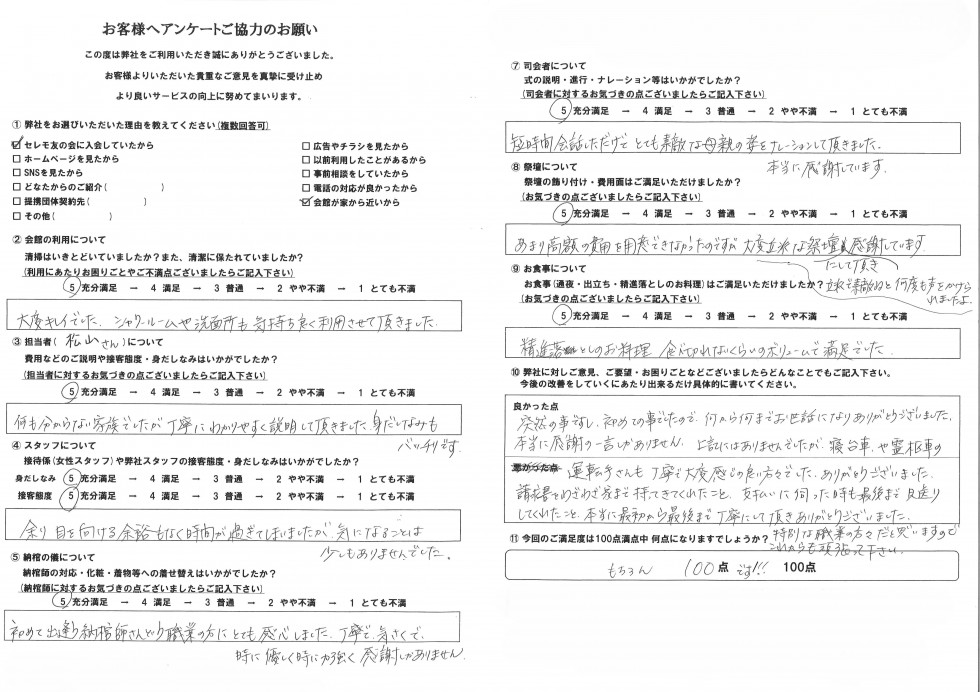 お客様へアンケートご協力のお願い
この度は弊社をご利用いただき誠にありがとうございました。
お客様よりいただいた貴重なご意見を真摯に受け止め
より良いサービスの向上に努めてまいります。
① 弊社をお選びいただいた理由を教えてください(複数回答可)
☑ セレモ友の会に入会していたから
□ ホームページを見たから
□ SNSを見たから
□ どなたからのご紹介( )
□ 提携団体契約先( )
□ その他( )
□ 広告やチラシを見たから
□ 以前利用したことがあるから
□ 事前相談をしていたから
□ 電話の対応が良かったから
☑ 会館が家から近いから
② 会館の利用について
清掃はいきとどいていましたか?また、清潔に保たれていましたか?
(利用にあたりお困りごとやご不満点ございましたらご記入下さい)
5 充分満足 → 4 満足 → 3 普通 → 2 やや不満 → 1 とても不満
大変キレイでした。シャワールームや洗面所も気持ち良く利用させて頂きました。
③ 担当者( 松山さん )について
費用などのご説明や接客態度・身だしなみはいかがでしたか?
(担当者に対するお気づきの点ございましたらご記入下さい)
5 充分満足 → 4 満足 → 3 普通 → 2 やや不満 → 1 とても不満
何も分からない家族でしたが丁寧にわかりやすく説明して頂きました。身だしなみも
バッチリです。
④ スタッフについて
接待係(女性スタッフ)や弊社スタッフの接客態度・身だしなみはいかがでしたか?
身だしなみ 5 充分満足 → 4 満足 → 3 普通 → 2 やや不満 → 1 とても不満
接客態度 5 充分満足 → 4 満足 → 3 普通 → 2 やや不満 → 1 とても不満
余り目を向ける余裕もなく時間が過ぎてしまいましたが、気になることは
少しもありませんでした。
⑤ 納棺の儀について
納棺師の対応・化粧・着物等への着せ替えはいかがでしたか?
(納棺師に対するお気づきの点ございましたらご記入下さい)
5 充分満足 → 4 満足 → 3 普通 → 2 やや不満 → 1 とても不満
初めて出逢う納棺師さんという職業の方にとても感心しました。丁寧で、気さくで、
時に優しく時に力強く感謝しかありません。
⑦ 司会者について
式の説明・進行・ナレーション等はいかがでしたか?
(司会者に対するお気づきの点ございましたらご記入下さい)
5 充分満足 → 4 満足 → 3 普通 → 2 やや不満 → 1 とても不満
短時間会話しただけでとても素敵な母親の姿をナレーションして頂きました。
本当に感謝しています。
⑧ 祭壇について
祭壇の飾り付け・費用面はご満足いただけましたか?
(お気づきの点ございましたらご記入下さい)
5 充分満足 → 4 満足 → 3 普通 → 2 やや不満 → 1 とても不満
あまり高額の費用を用意できなかったのですが大変立派な祭壇 感謝しています。
にして頂き
⑨ お食事について
お食事(通夜・出立ち・精進落としのお料理)はご満足いただけましたか?
立派で素敵ねと何度も声をかけら
れましたよ。
(お気づきの点ございましたらご記入下さい)
5 充分満足 → 4 満足 → 3 普通 → 2 やや不満 → 1 とても不満
精進落としのお料理 食べ切れないくらいのボリュームで満足でした。
⑩ 弊社に対しご意見、ご要望・お困りごとなどございましたらどんなことでもご記入下さい。
今後の改善をしていくにあたり出来るだけ具体的に書いてください。
良かった点
突然の事ですし、初めての事でしたので、何から何までお世話になりありがとうございました。
本当に感謝の一言しかありません。上記にはありませんでしたが、寝台車や霊柩車の
悪かった点 運転手さんも丁寧で大変感じの良い方々でした。ありがとうございました。
請求書をわざわざ家まで持ってきてくれたこと、支払いに伺った時も最後まで見送り
してくれたこと、本当に最初から最後まで丁寧にして頂きありがとうございました。
特別な職業の方々だと思いますので
これからも頑張って下さい。
⑪ 今回のご満足度は100点満点中 何点になりますでしょうか?
もちろん 100点 です!!! 100点